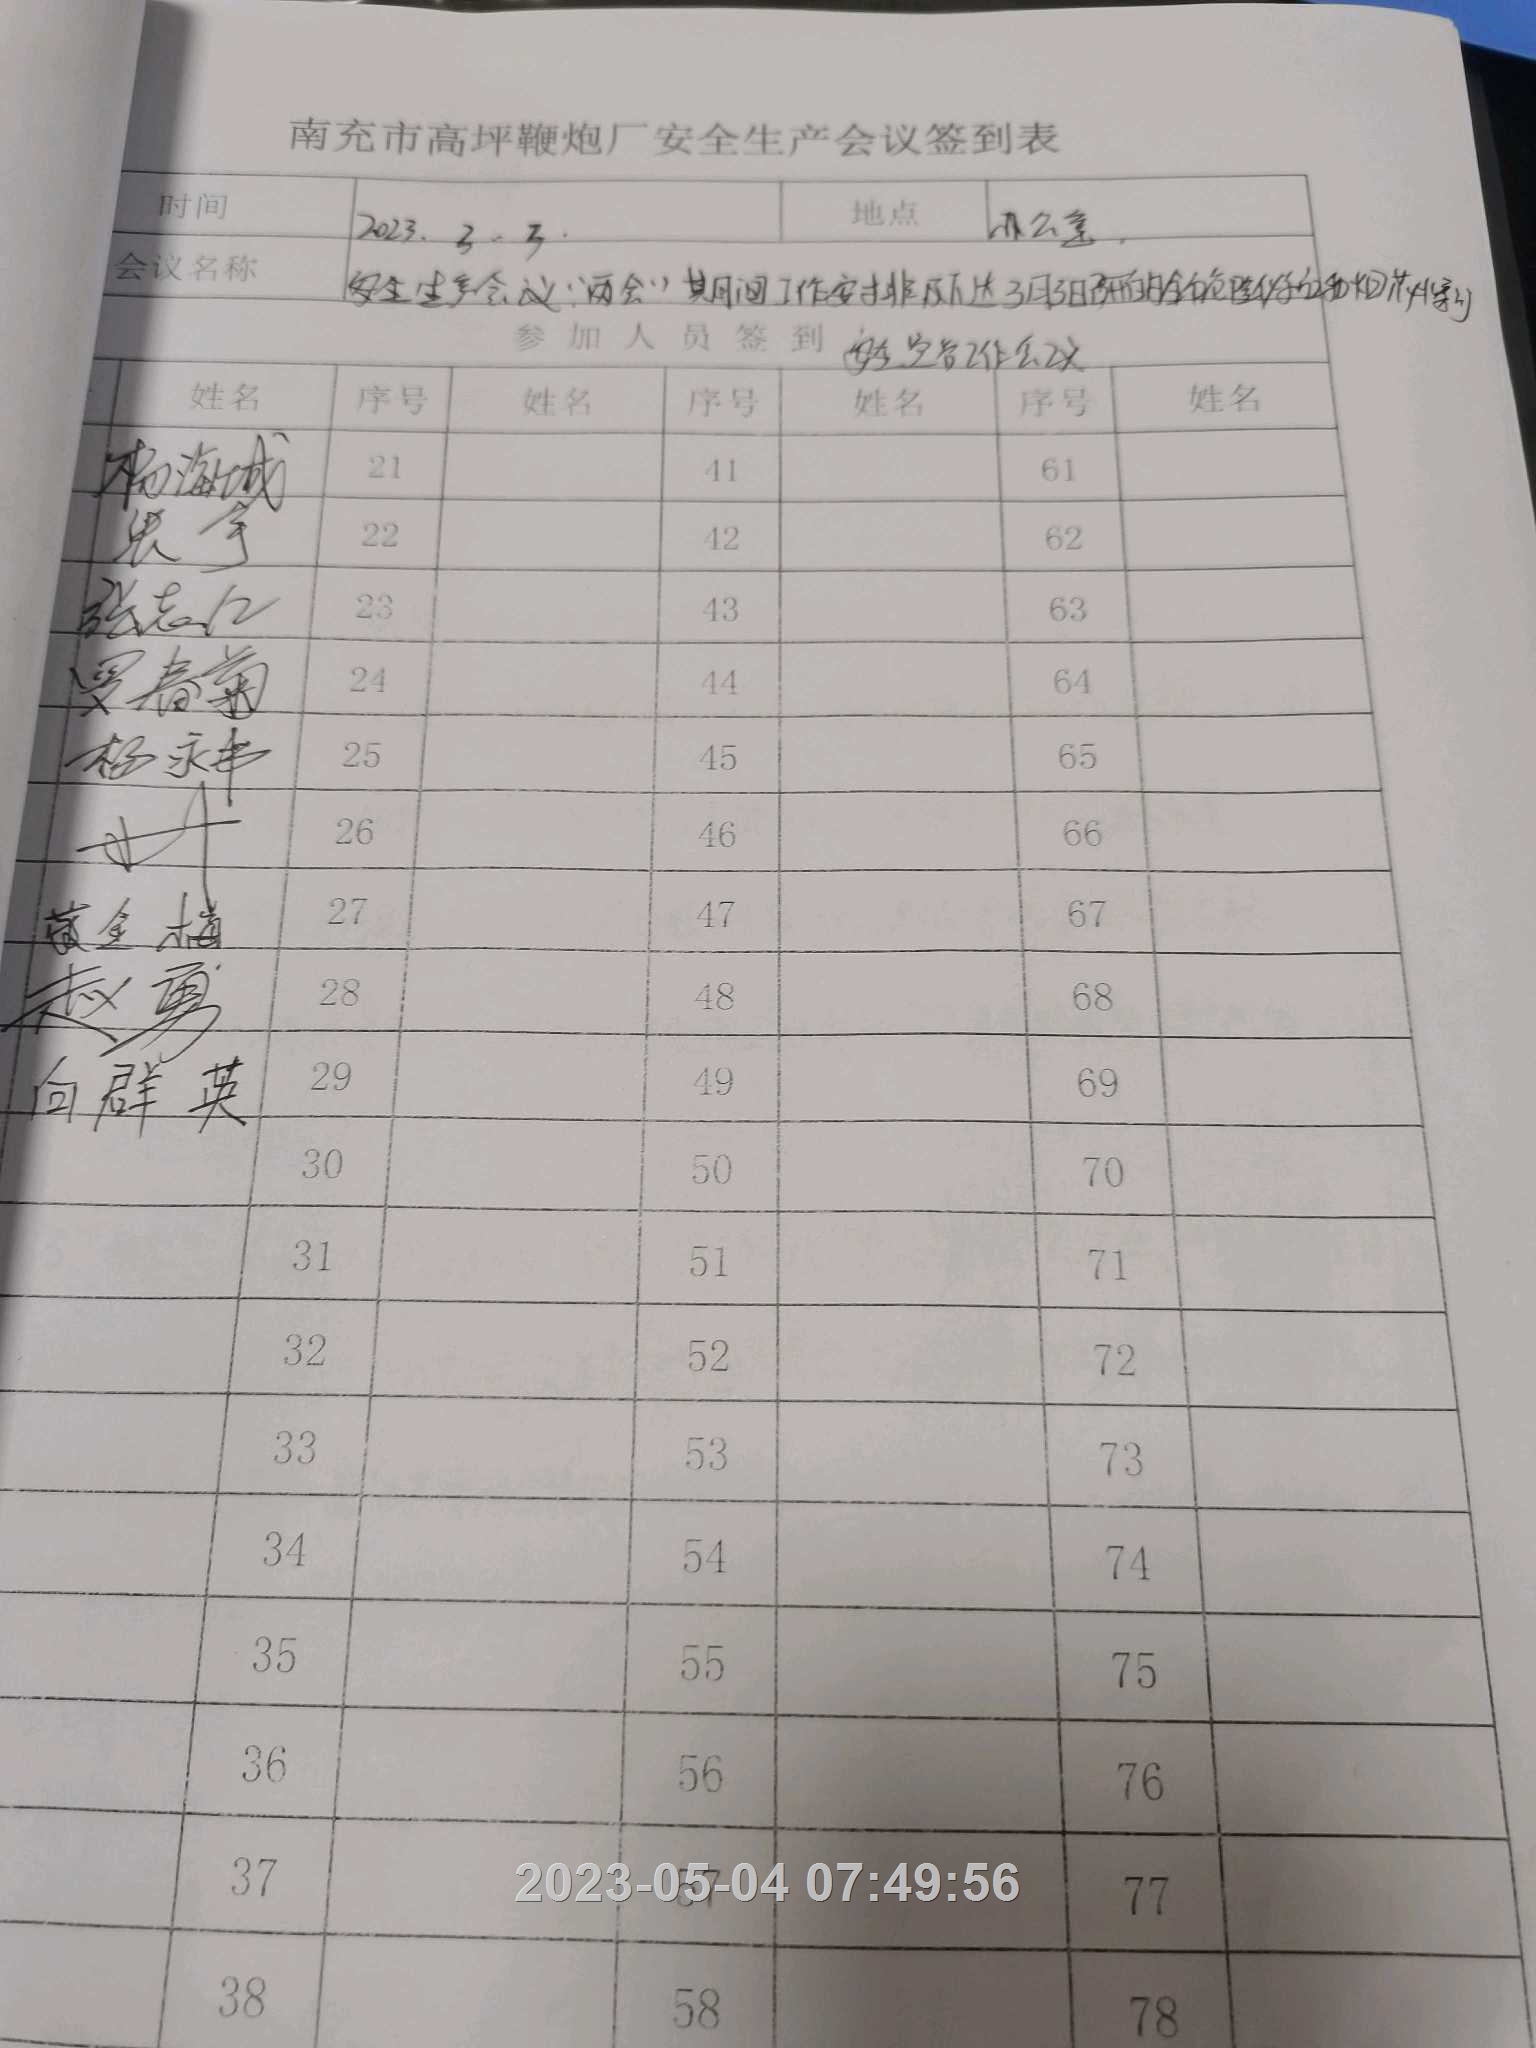 南充市高坪鞭炮厂安全生产会议签到表
时间 2023. 3. 3. 地点 办公室.
会议名称 安全生产会议"两会"期间工作安排及下达3月3日
参加人员签到 工作会议
姓名 序号 姓名 序号 姓名 序号 姓名
杨海城 21 41 61
22 42 62
张志仁 23 43 63
罗春菊 24 44 64
杨永丰 25 45 65
26 46 66
金梅 27 47 67
赵勇 28 48 68
向群英 29 49 69
30 50 70
31 51 71
32 52 72
33 53 73
34 54 74
35 55 75
36 56 76
37 57 77
2023-05-04 07:49:56
38 58 78